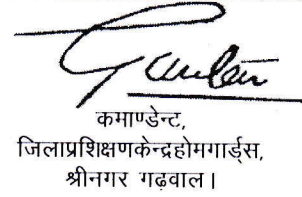 कमाण्डेन्ट,
जिलाप्रशिक्षणकेन्द्रहोमगार्ड्स,
श्रीनगर गढ़वाल।